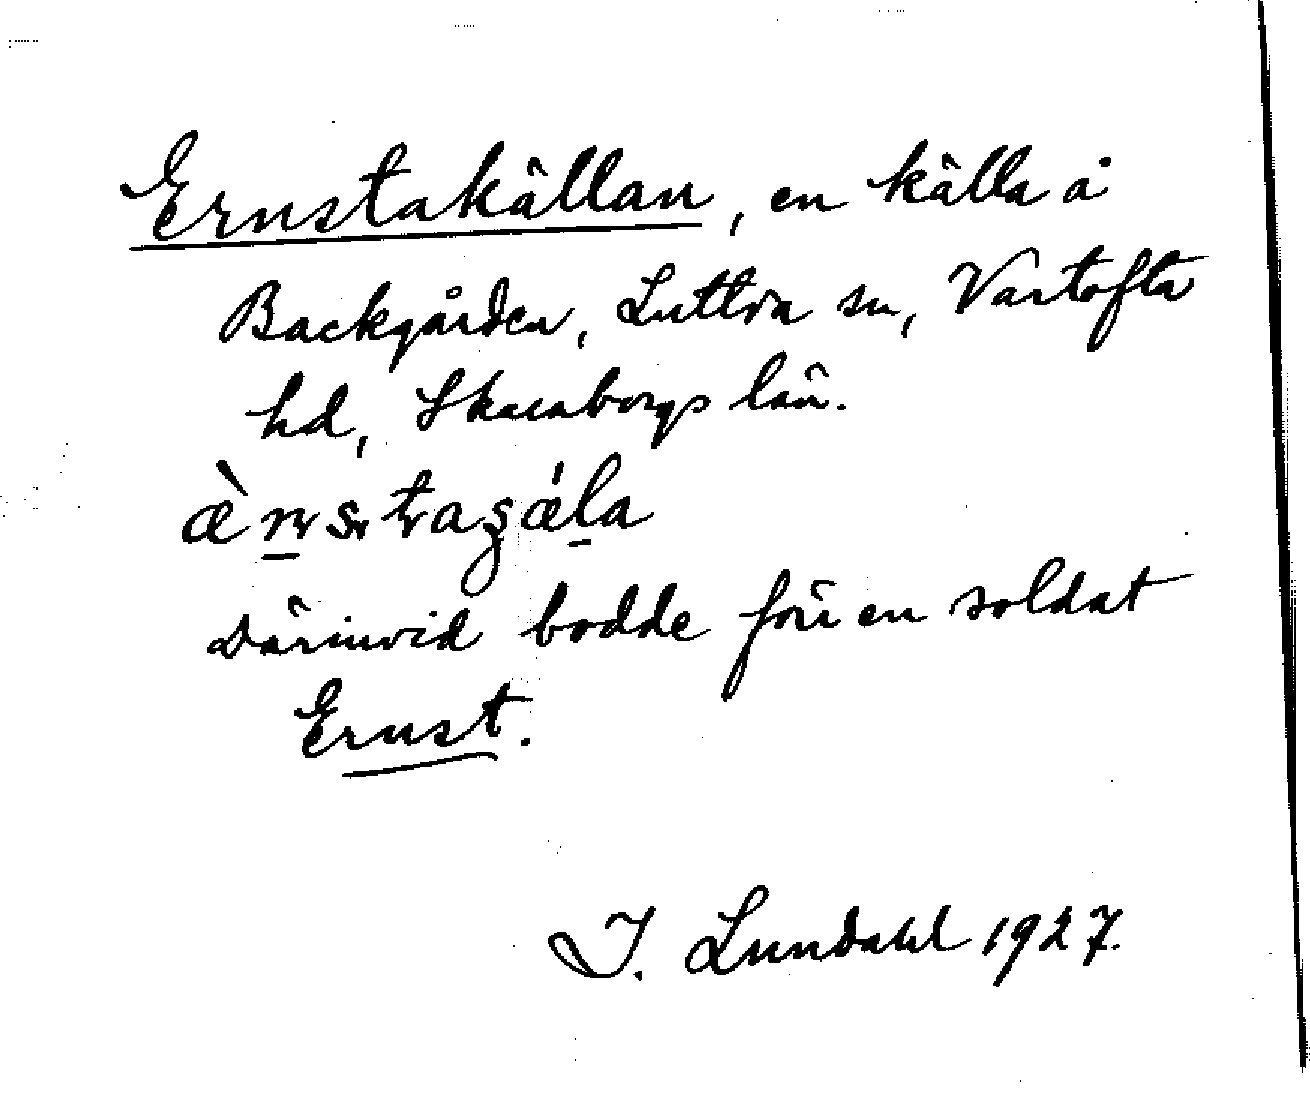 Ernstakällan, en källa å
Backgården, Luttra sn, Vartofta
hd, Skaraborgs län.
æ̀n̠staʂǽl̠a
Därinvid bodde förr en soldat
Ernst.
I. Lundahl 1927.